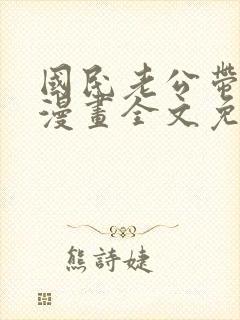 國民老公帶
漫畫全文免
熊詩婕